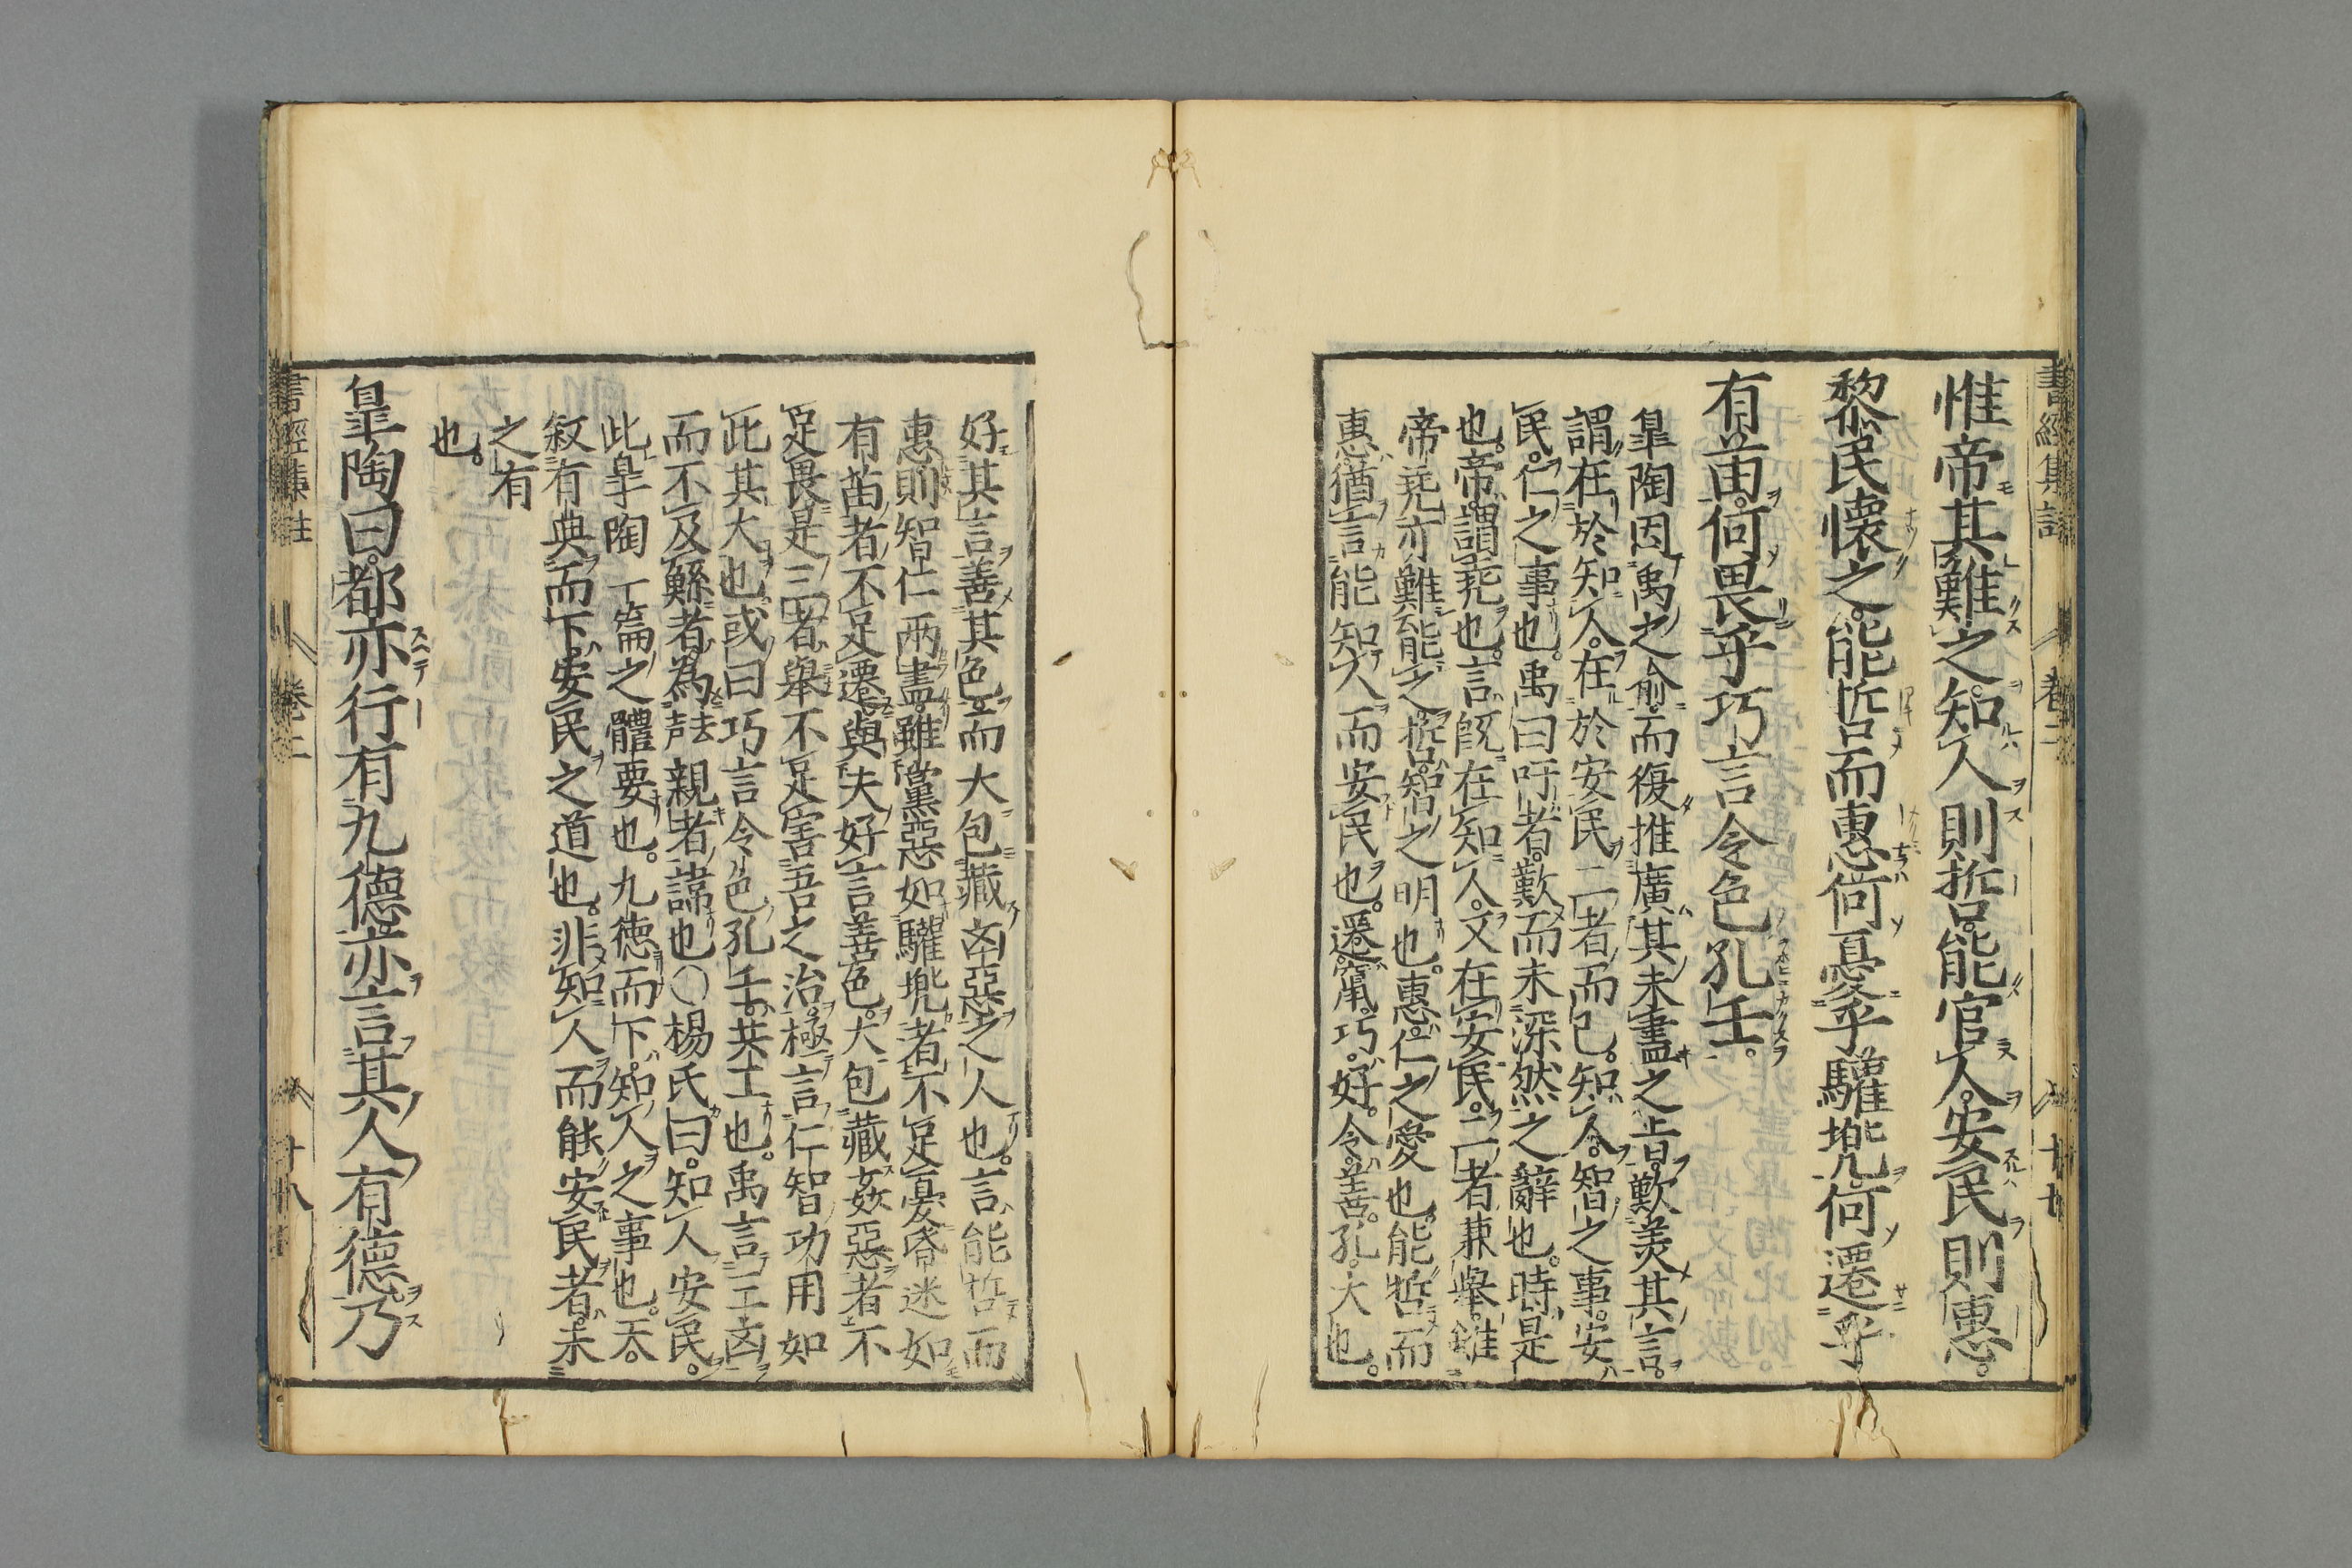 惟帝其難之知人則哲能官人安民則惠
黎民懷之能哲而惠何憂乎驩兜何遷乎
有苗何畏乎巧言令色孔壬
皐陶因禹之俞而復推廣其未盡之旨歎美其言
謂在於知人在於安民二者而已知人智之事安
民仁之事也禹曰吁者歎而未深然之辭也時是
也帝謂堯也言既在知人又在安民二者兼舉雖
帝堯亦難能之哲智之明也惠仁之愛也能哲而
惠猶言能知人而安民也遷竄巧好令善孔大也
好其言善其色而大包藏凶惡之人也言能哲而
惠則智仁兩盡雖黨惡如驩兜者不足憂昏迷如
有苗者不足遷與夫好言善色大包藏姦惡者不
足畏是三者舉不足害吾之治極言仁智功用如
此其大也或曰巧言令色孔壬共工也禹言三凶
而不及鯀者為親者諱也○楊氏曰知人安民
此皐陶一篇之體要也九德而下知人之事也天
敍有典而下安民之道也非知人而能安民者未
之有
也
皐陶曰都亦行有九德亦言其人有德乃
書經集註 卷二 十八